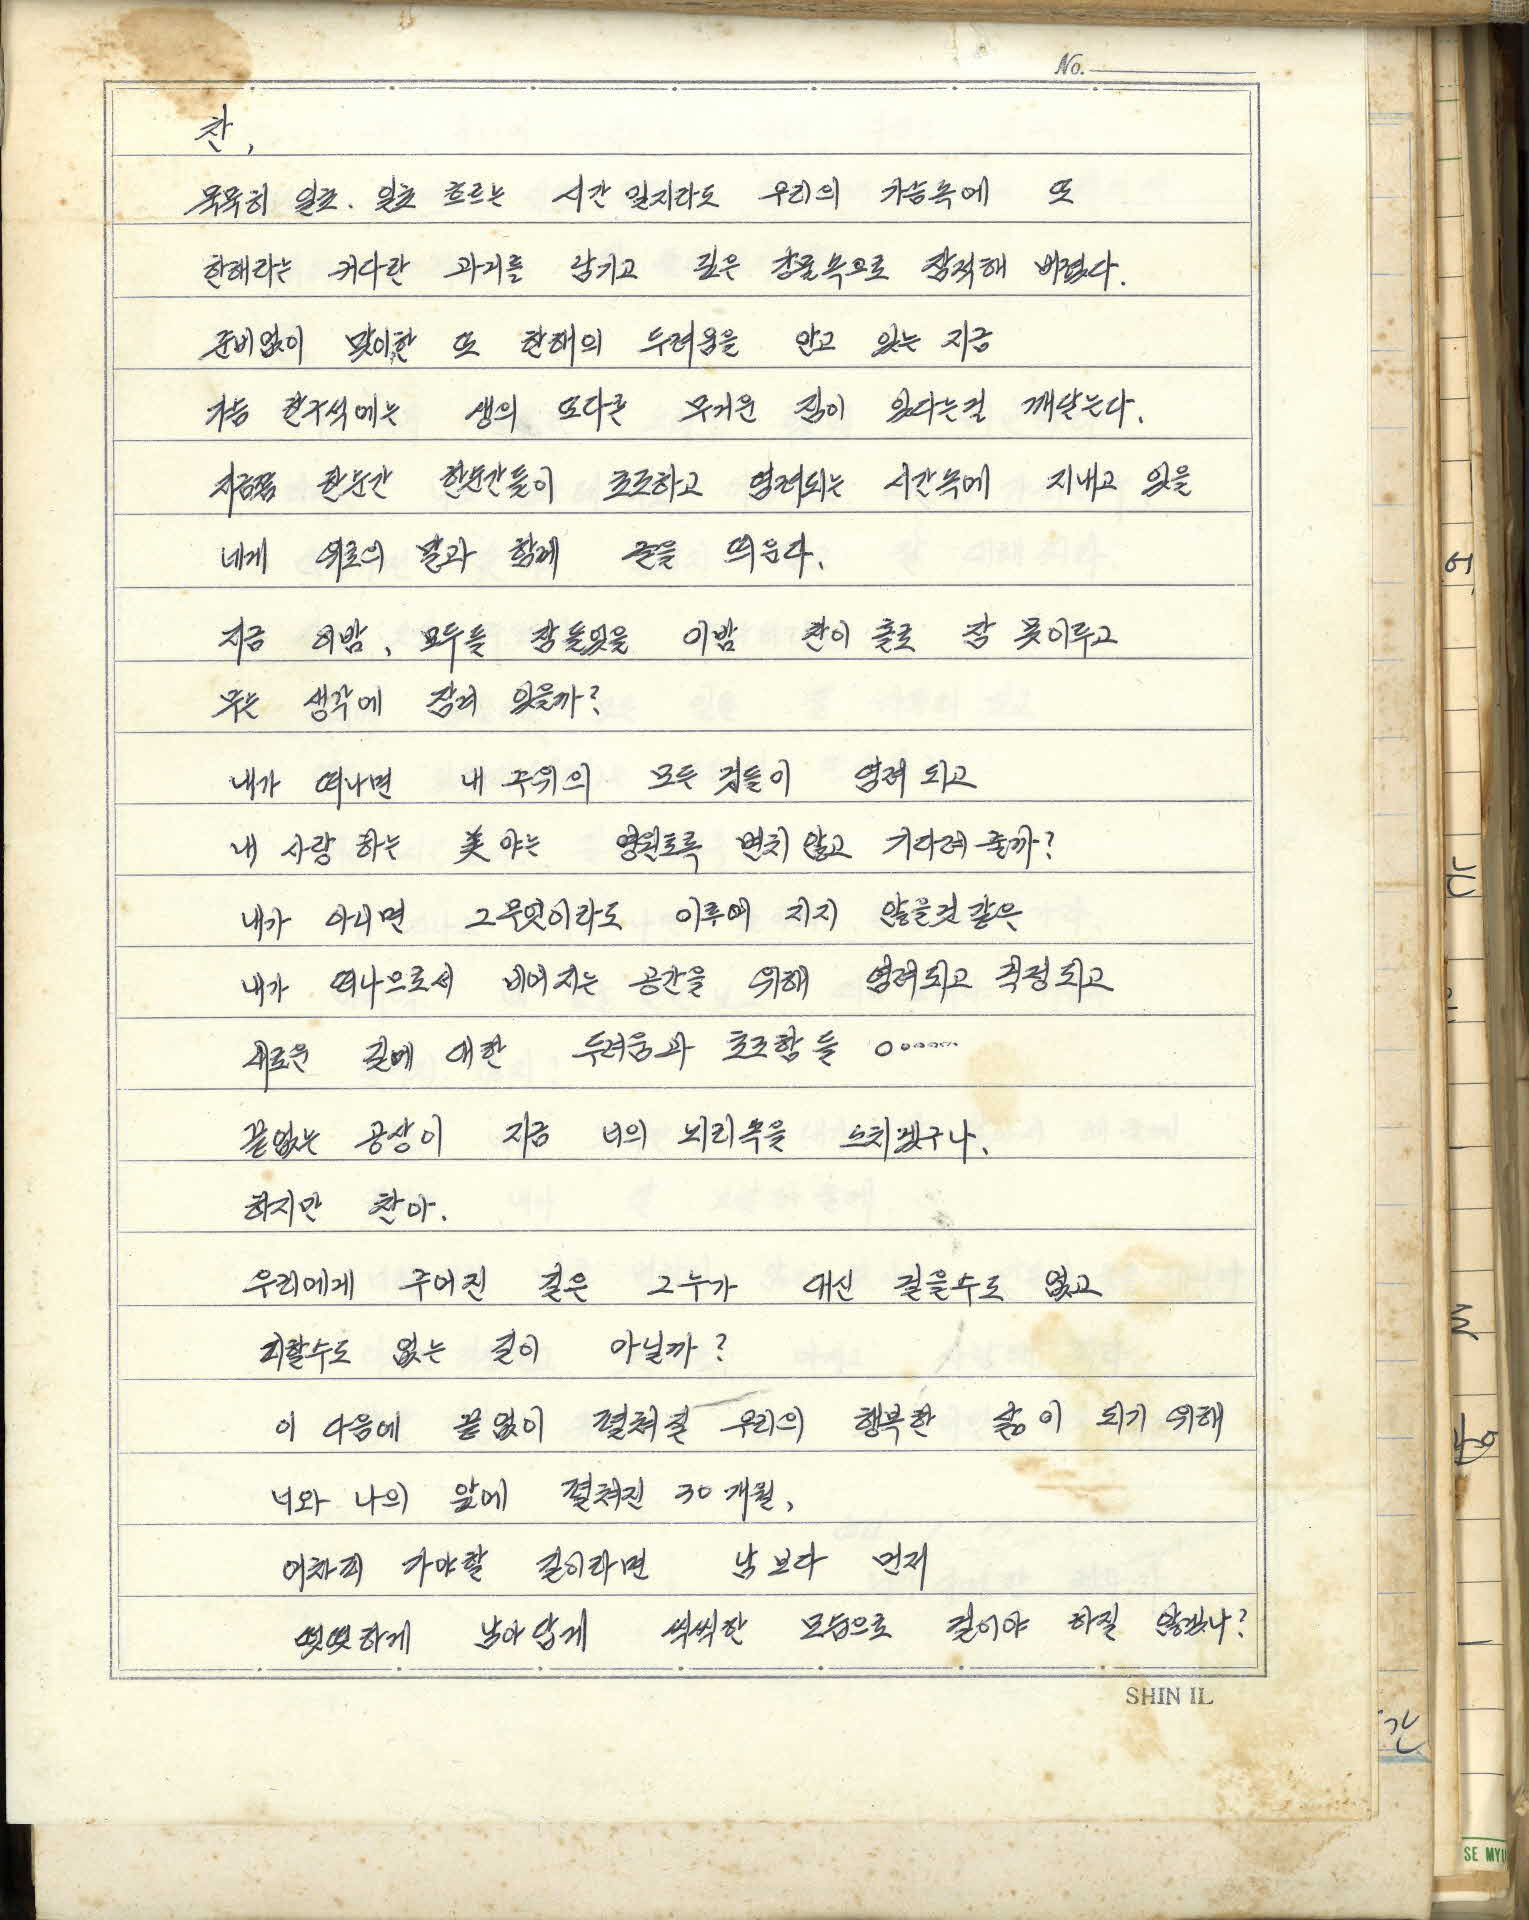 No.
찬,
묵묵히 일초. 일초 흐르는 시간 일지라도 우리의 가슴속에 또
한해라는 커다란 과거를 남기고 깊은 강물속으로 잠적해 버렸다.
준비없이 맞이한 또 한해의 두려움을 안고 있는 지금
가슴 한구석에는 생의 또다른 무거운 짐이 있다는걸 깨닫는다.
지금쯤 한순간 한순간들이 초조하고 염려되는 시간속에 지내고 있을
네게 위로의 말과 함께 글을 띄운다.
지금 이밤, 모두들 잠들었을 이밤 찬이 홀로 잠 못이루고
무슨 생각에 잠겨 있을까?
내가 떠나면 내 주위의 모든 것들이 염려 되고
내 사랑 하는 美 야는 영원토록 변치 않고 기다려 줄까?
내가 아니면 그무엇이라도 이루어 지지 않을것 같은
내가 떠나므로서 비어지는 공간을 위해 염려되고 걱정되고
새로운 길에 대한 두려움과 초조함 들 o.....
끝없는 공상이 지금 너의 뇌리 속을 스치겠구나,
하지만 찬아.
우리에게 주어진 길은 그누가 대신 걸을수도 없고
피할수도 없는 길이 아닐까?
이 다음에 끝없이 펼쳐질 우리의 행복한 삶이 되기 위해
너와 나의 앞에 펼쳐진 30 개월,
어차피 가야할 길이라면 남보다 먼저
떳떳하게 남아답게 씩씩한 모습으로 걸어야 하질 않겠나?
SHIN IL
간
SE MYU